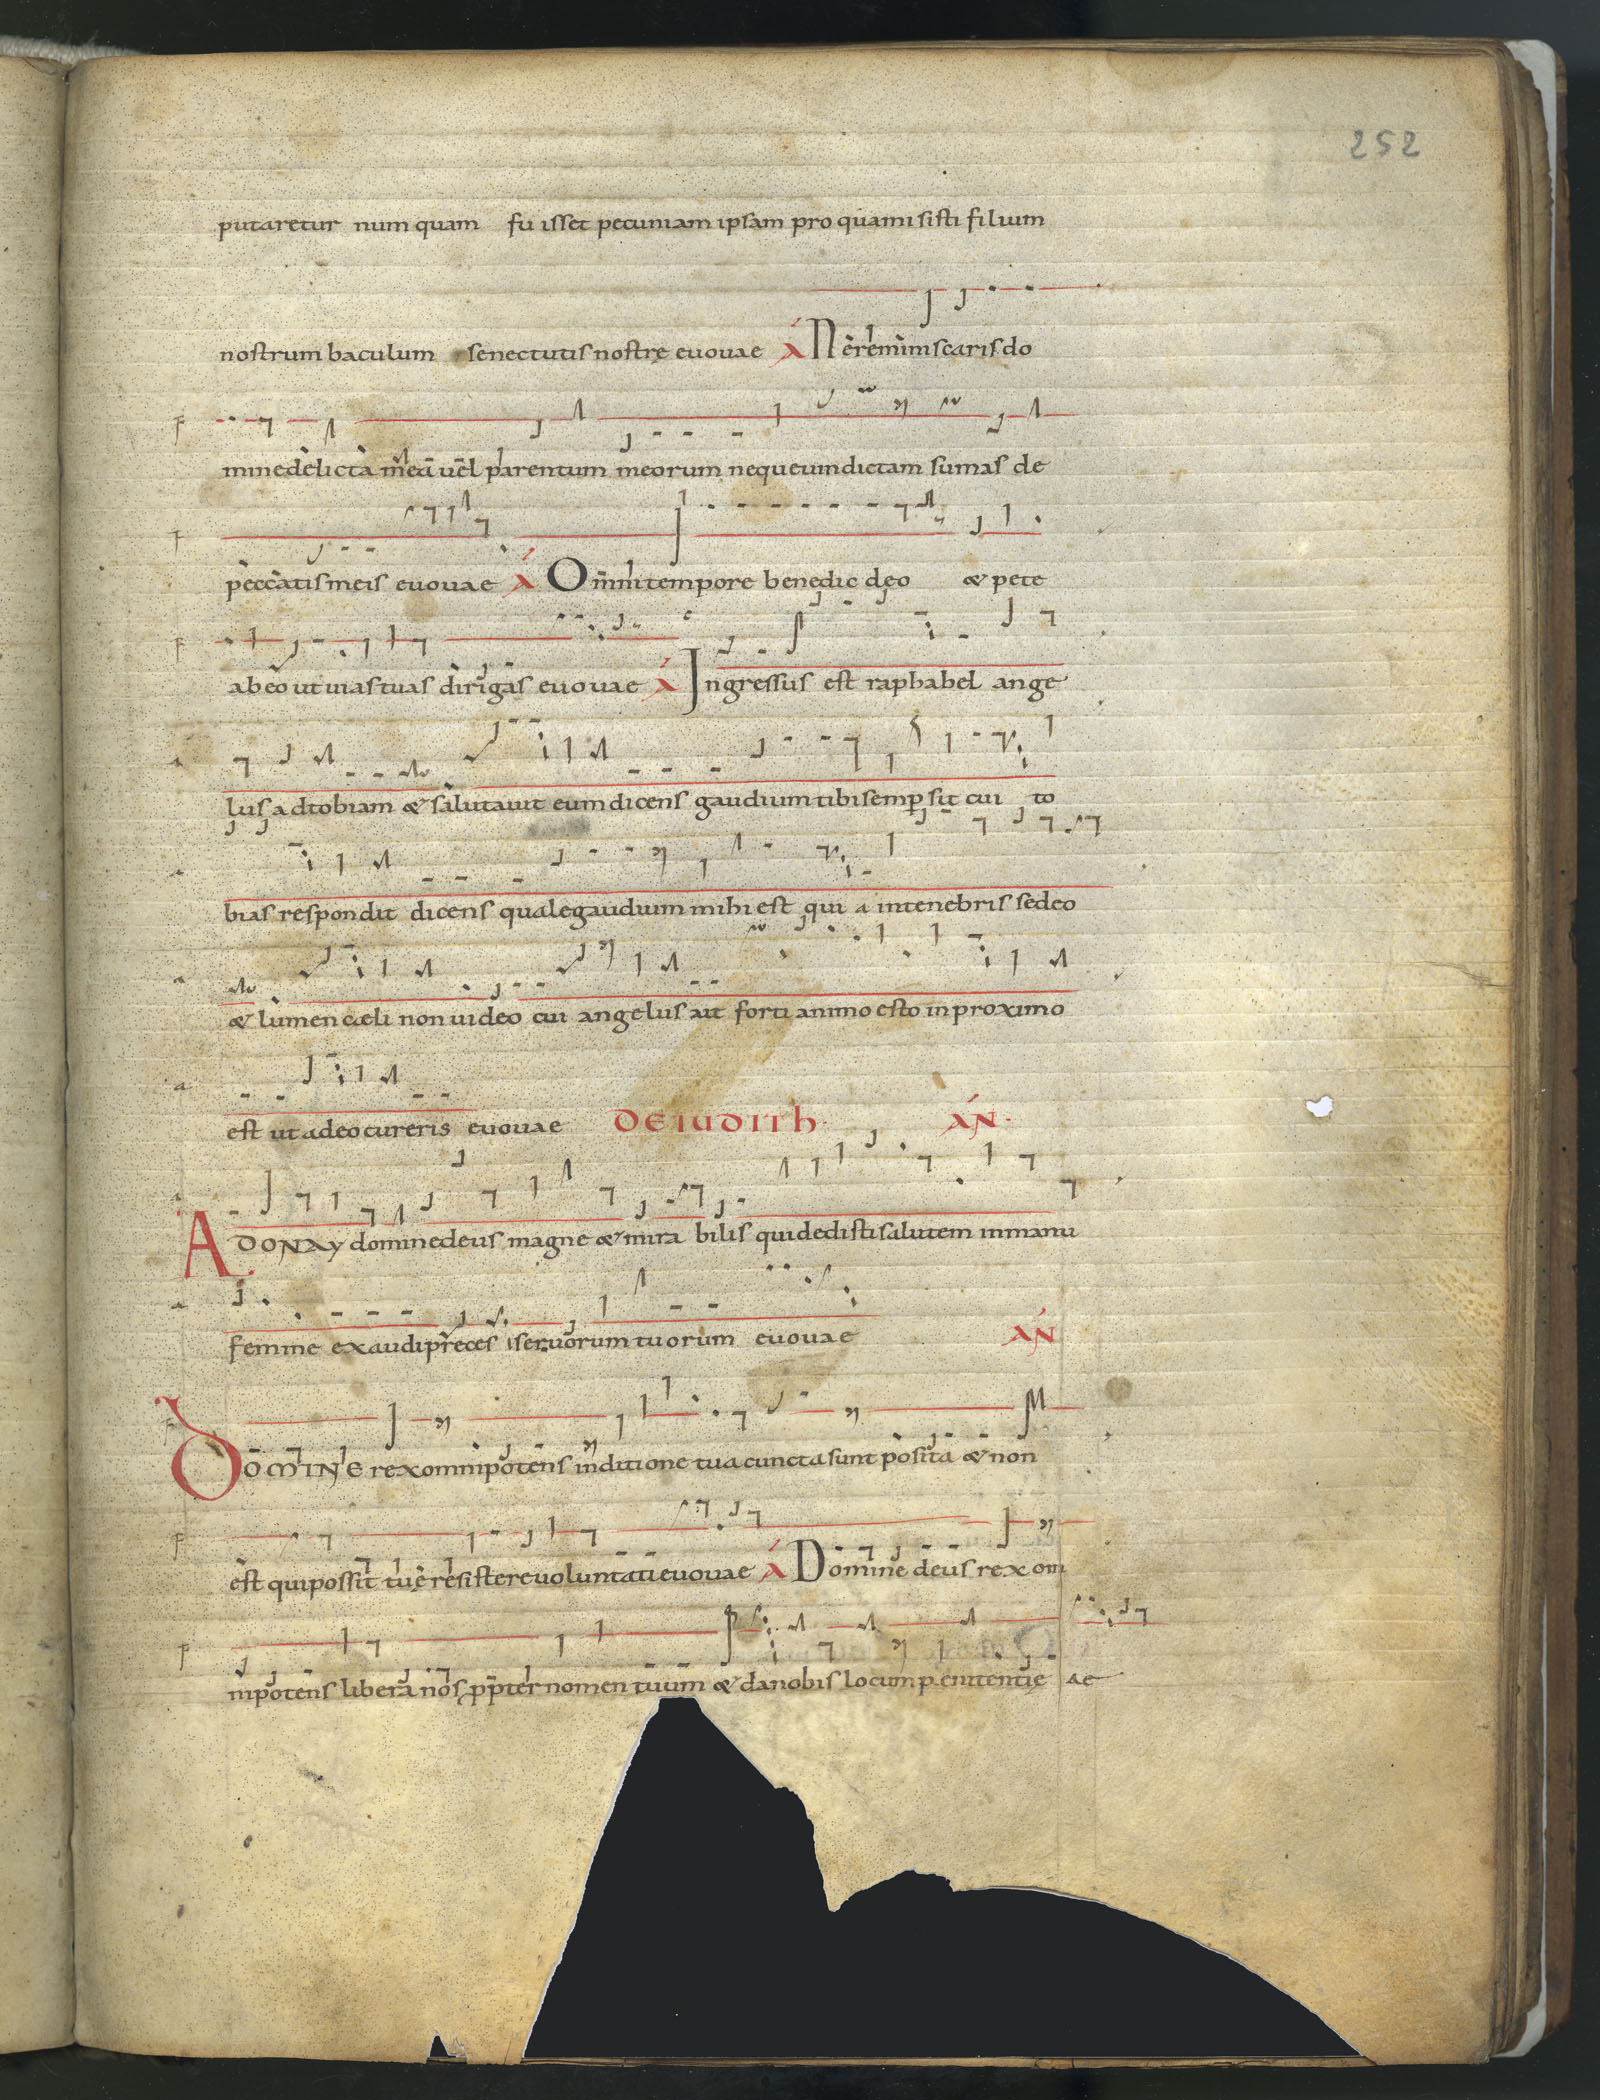 252
putaretur num quam fu isset pecuniam ipsam pro quam misisti filium
nostrum baculum senectutis nostrę euouae A Ne reminiscaris do
mine delicta mea uel parentum meorum neque uindictam sumas de
F
peccatis meis euouae A Omni tempore benedic deo & pete
F
ab eo ut uias tuas dirigas euouae A Ingressus est raphahel ange
F
lus ad tobiam & salutauit eum dicens gaudium tibi semp sit cui to
a
bias respondit dicens quale gaudium mihi est qui a in tenebris sedeo
a
& lumen cæli non uideo cui angelus ait forti animo esto in proximo
a
est ut a deo cureris euouae DE IUDITH. AN.
a
ADONAY domine deus magne & mira bilis qui dedisti salutem in manu
a
femine exaudi preces seruorum tuorum euouae AN
a
DOMINE rex omnipotens in ditione tua cuncta sunt posita & non
F
est qui possit tuę resistere uoluntati euouae A Domine deus rex om
F
nipotens libera nos ppter nomen tuum & da nobis locum penitentię ae
F